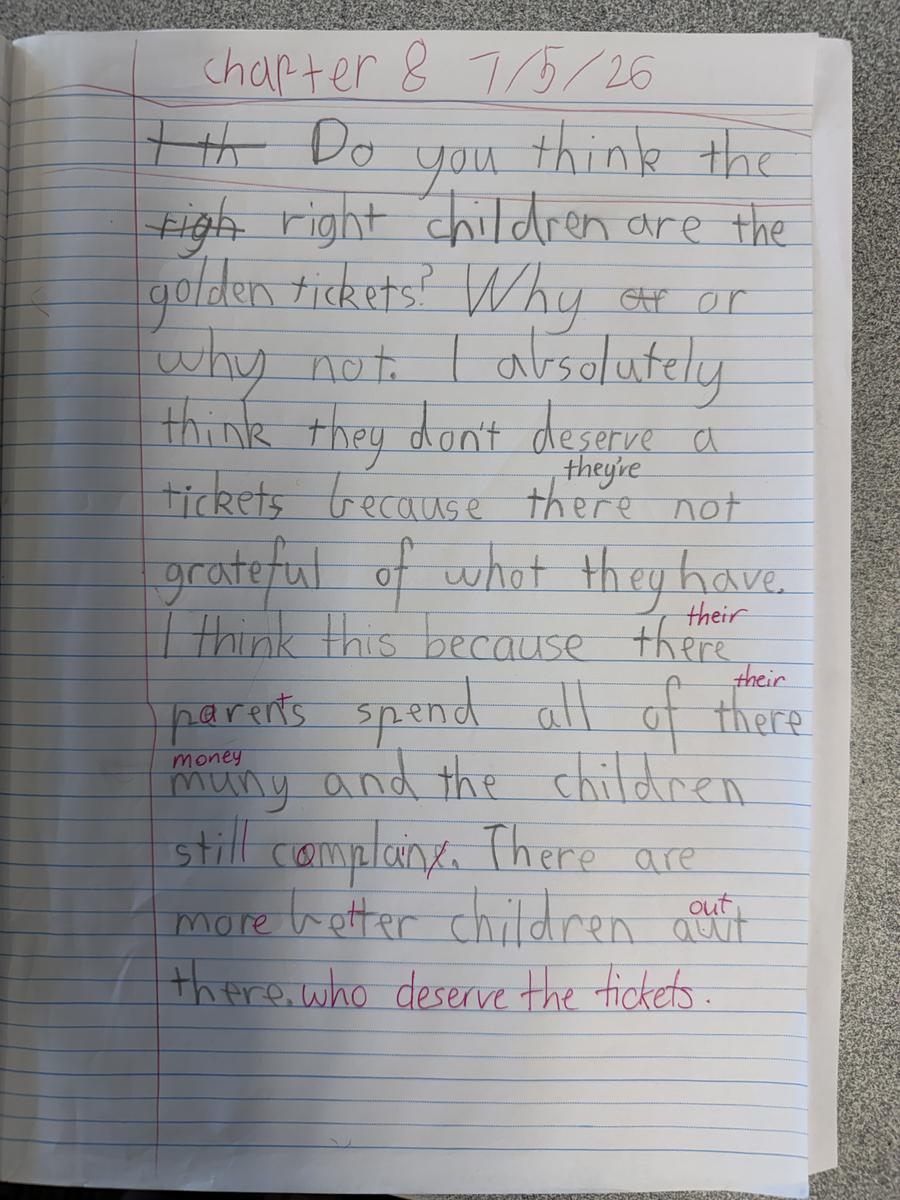 chapter 8 7/5/26
I th Do you think the
righ right children are the
golden tickets? Why or or
why not. I absolutely
think they don't deserve a
they're
tickets because there not
grateful of what they have.
their
I think this because there
their
parents spend all of there
money
muny and the children
still complainx. There are
out
more better children auwt
there. who deserve the tickets.